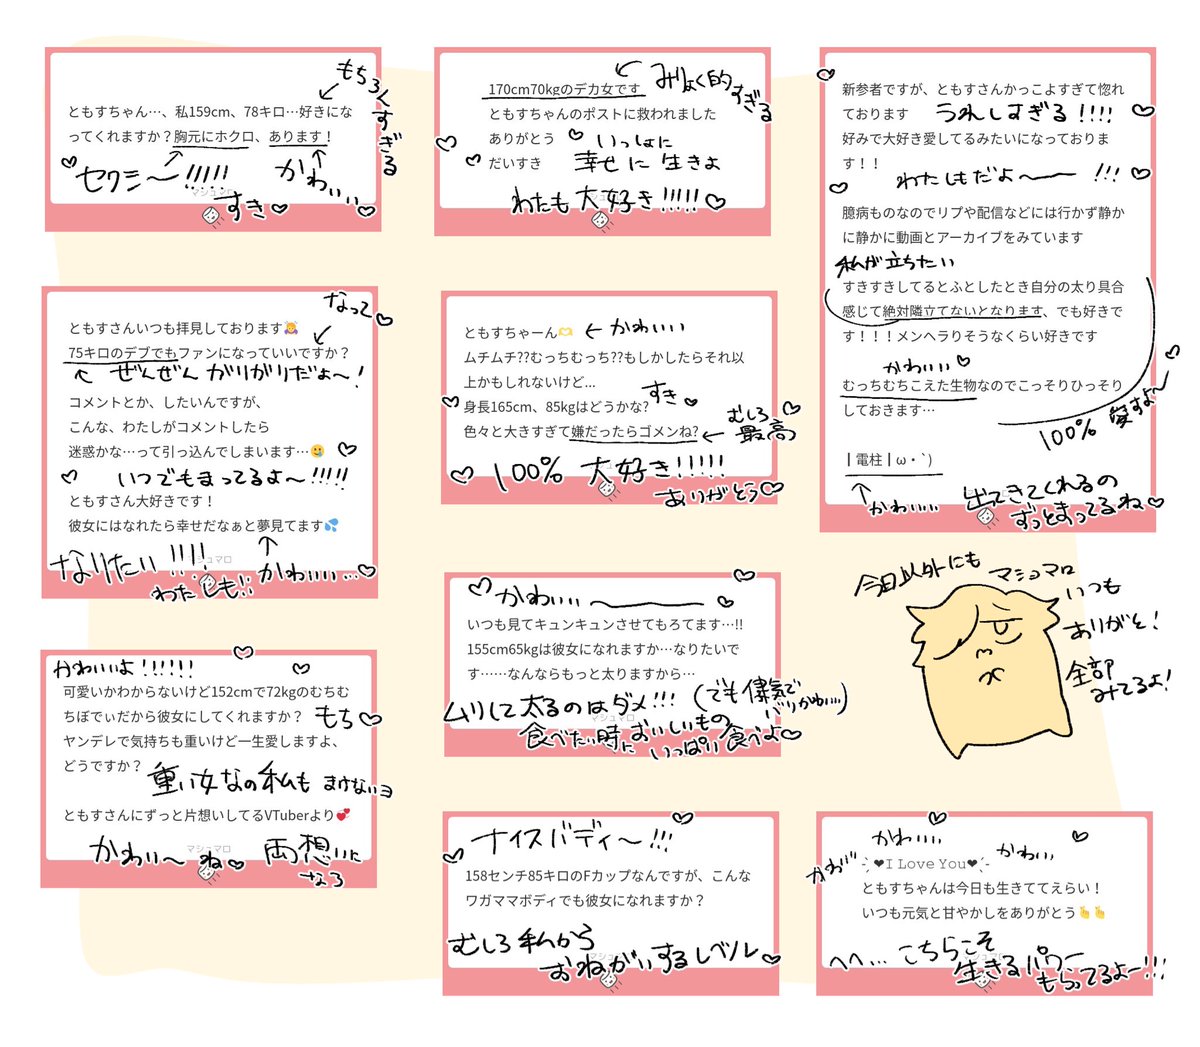 ともすちゃん…、私159cm、78キロ…好きにな
ってくれますか？胸元にホクロ、あります！
もちろんすぎる
セクシ〜!!!!!
かわいい
すき
マシュマロ
なって
ともすさんいつも拝見しております🙇‍♀️
75キロのデブでもファンになっていいですか？
ぜんぜん ガリガリだよ〜!
コメントとか、したいんですが、
こんな、わたしがコメントしたら
迷惑かな…って引っ込んでしまいます…🥲
いつでもまってるよ〜!!!!!
ともすさん大好きです！
彼女にはなれたら幸せだなぁと夢見てます💦
なりたい!!!!
わたしも!!
かわいい…
マシュマロ
かわいいよ!!!!!!
可愛いかわからないけど152cmで72kgのむちむ
ちぼでぃだから彼女にしてくれますか？
もち
ヤンデレで気持ちも重いけど一生愛しますよ、
どうですか？
重い女なの私も まけないヨ
ともすさんにずっと片想いしてるVTuberより💕
かわいい〜ね
両想いに
なろ
マシュマロ
みりょく的
すぎる
170cm70kgのデカ女です
ともすちゃんのポストに救われました
ありがとう
だいすき
いっしょに
幸せに生きよ
わたも大好き!!!!!
ともすちゃーん🫶
かわいい
ムチムチ??むっちむっち??もしかしたらそれ以
上かもしれないけど...
身長165cm、85kgはどうかな?
すき
色々と大きすぎて嫌だったらゴメンね?
むしろ
最高
100% 大好き!!!!!
ありがとう
かわいい〜
いつも見てキュンキュンさせてもろてます…!!
155cm65kgは彼女になれますか…なりたいで
す……なんならもっと太りますから…
ムリして太るのはダメ!!!
(でも健気で
バリかわいい…)
食べたい時に おいしいもの
いっぱい食べよ
マシュマロ
ナイスバディ〜!!!
158センチ85キロのFカップなんですが、こんな
ワガママボディでも彼女になれますか？
むしろ私から
おねがいするレベル
マシュマロ
新参者ですが、ともすさんかっこよすぎて惚れ
ております
うれしすぎる!!!!
好みで大好き愛してるみたいになっておりま
す！！
わたしもだよ〜!!!
臆病ものなのでリプや配信などには行かず静か
に静かに動画とアーカイブをみています
私が立ちたい
すきすきしてるとふとしたとき自分の太り具合
感じて絶対隣立てないとなります、でも好きで
す！！！メンヘラりそうなくらい好きです
かわいい
むっちむちこえた生物なのでこっそりひっそり
しておきます…
100% 愛すよ〜
┃電柱┃ω・`)
かわいい…
出てきてくれるの
ずっとまってるね
今日以外にも マシュマロ
いつも
ありがと!
全部
みてるよ!
かわいい
かわいい
かわい
❤I Love You❤
ともすちゃんは今日も生きててえらい！
いつも元気と甘やかしをありがとう🫰🫰
へへ… こちらこそ
生きるパワー
もらってるよー!!!